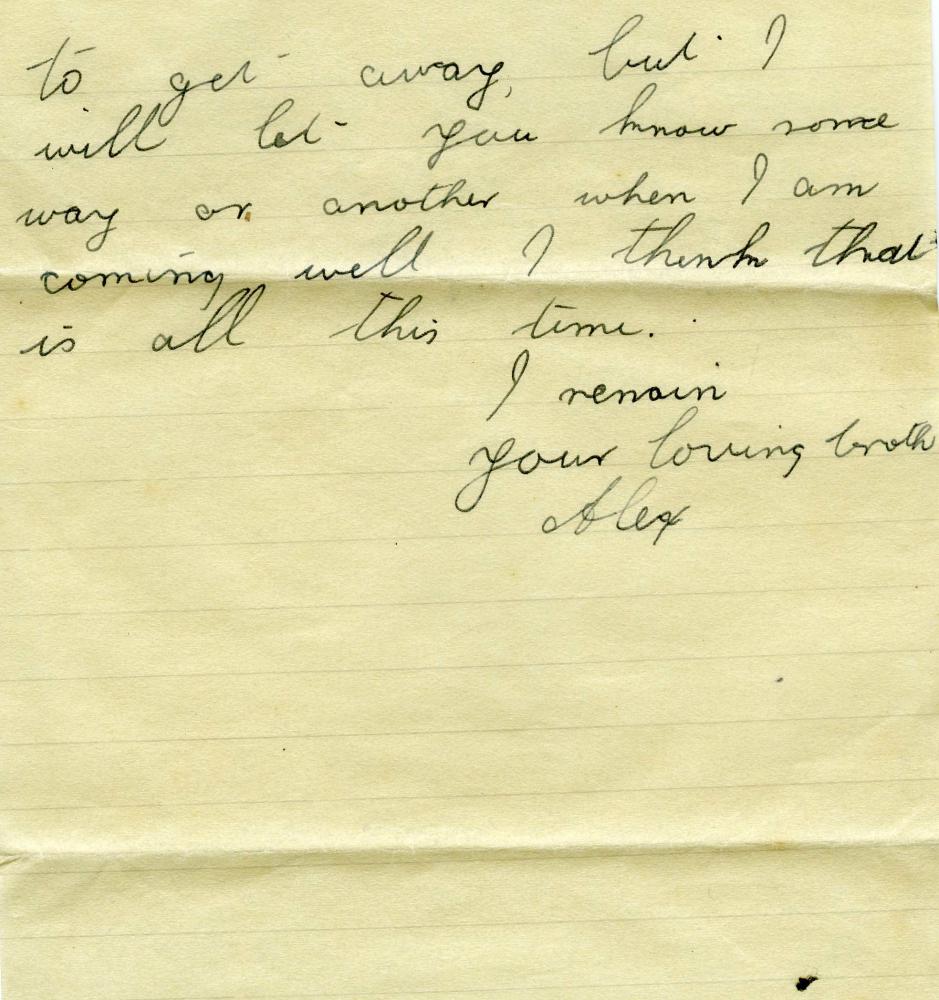 to get away, but I
will let you know some
way or another when I am
coming well I think that
is all this time.
I remain
your loving broth
Alex